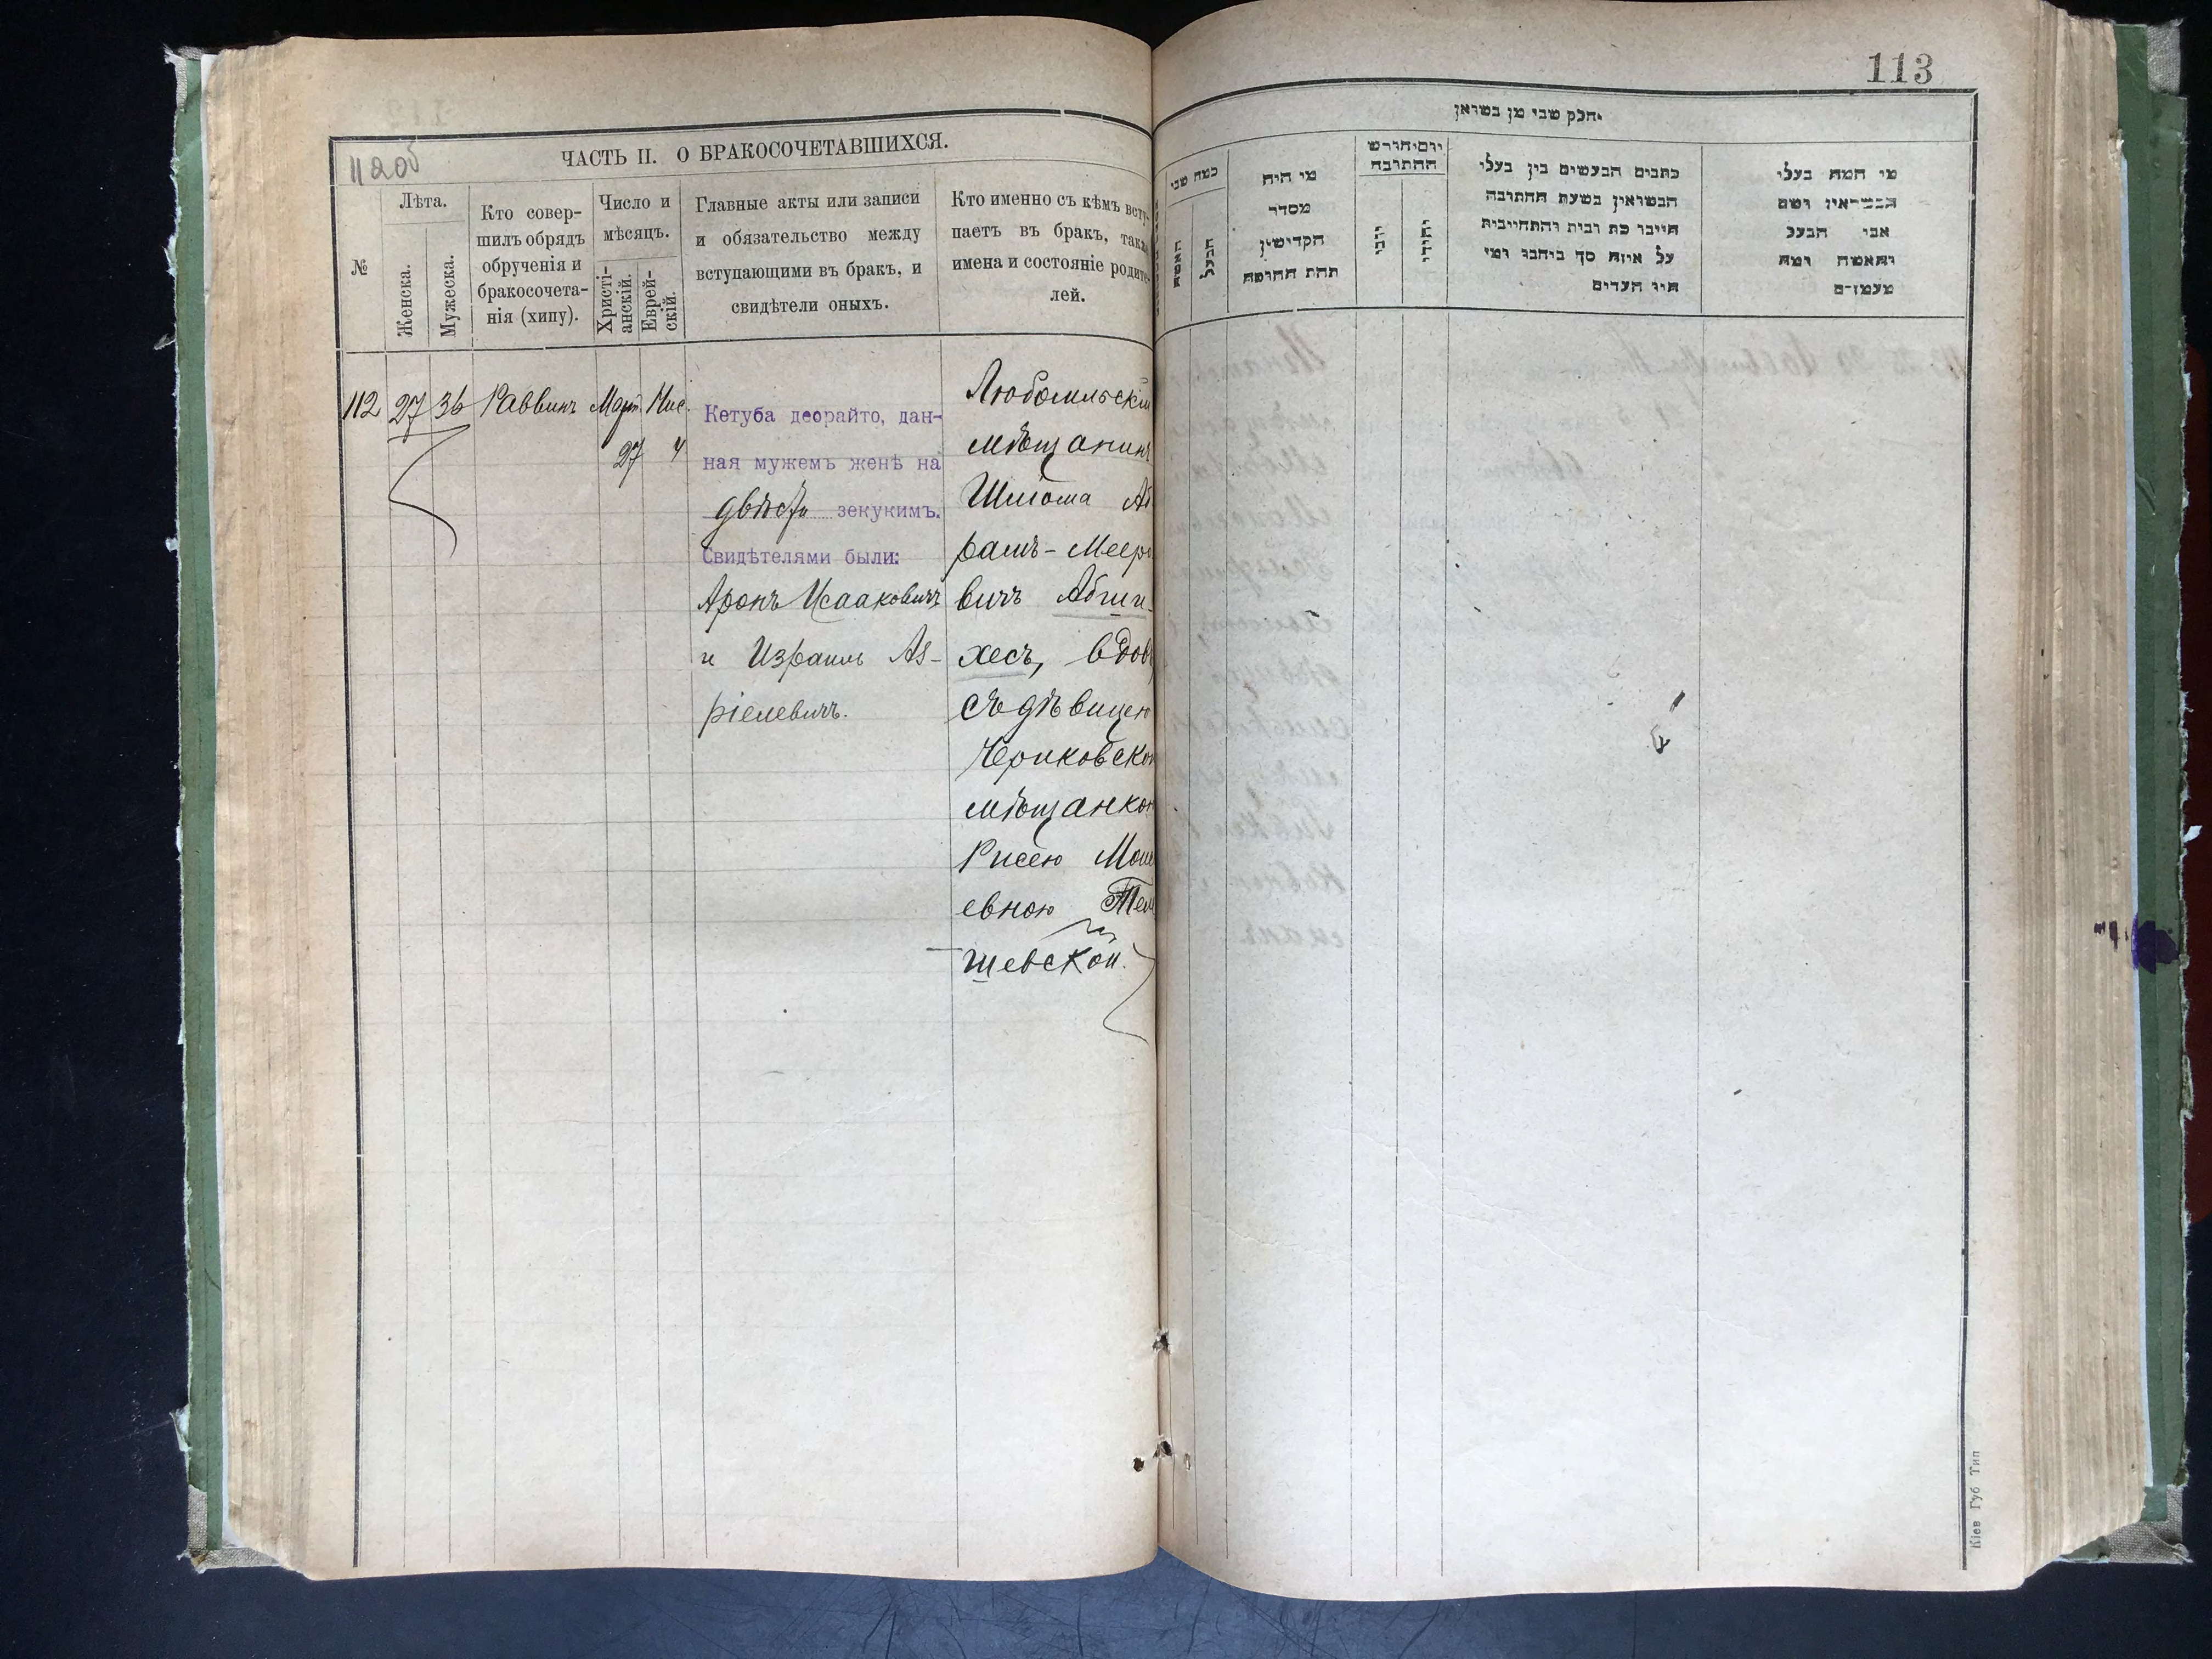 113
112об
ЧАСТЬ II. О БРАКОСОЧЕТАВШИХСЯ.
№
Лѣта.
Женска.
Мужеска.
Кто совер-
шилъ обрядъ
обрученія и
бракосочета-
нія (хипу).
Число и
мѣсяцъ.
Христі-
анскій.
Еврей-
скій.
Главные акты или записи
и обязательство между
вступающими въ бракъ, и
свидѣтели оныхъ.
Кто именно съ кѣмъ всту-
паетъ въ бракъ, также
имена и состояніе родите-
лей.
112 27 36 Раввинъ Март. Нис.
27 4
Кетуба деорайто, дан-
ная мужемъ женѣ на
двѣсти зекукимъ.
Свидѣтелями были:
Аронъ Исааковичъ
и Израиль Аз-
ріелевичъ.
Любомльскій
мѣщанинъ
Шлiома Аб
рамъ-Мееро
вичъ Абши-
хесъ, вдов
съ дѣвицею
Чериковскою
мѣщанкою
Рисею Мош
евною Тем
шевской.
חלק שני מן נשואין
כמה שני
האשה
הבעל
מי היה
מסדר
הקדושין
תחת החופה
יום וחודש
החתונה
נוצרי
יהודי
כתבים הנעשים בין בעלי
הנשואין בשעת החתונה
על איזה סך
מי המה בעלי
הנשואין ושם
אבי הבעל
והאשה
Кіев Губ Тип